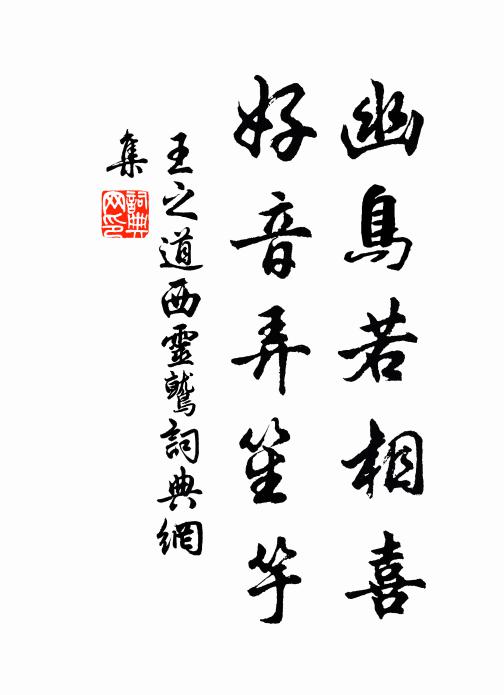 幽鳥若相喜
好音弄笙竽
王之道西靈鷲詞典網
集
詞典
网印